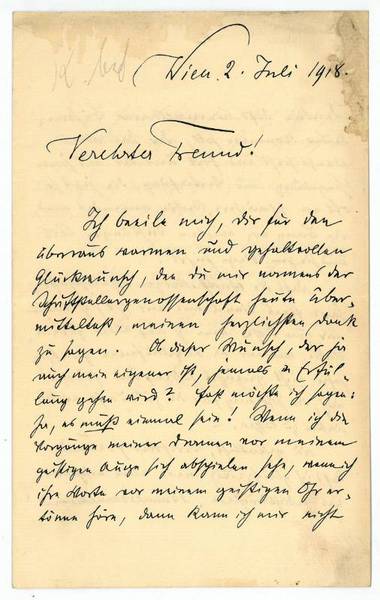 Wien 2. Juli 1918.
Verehrter Freund!
Ich beeile mich, dir für den
überaus warmen und gehaltvollen
Glückwunsch, den du mir namens der
Schriftstellergenossenschaft heute über-
mittelst, meinen herzlichsten Dank
zu sagen. Ob dieser Wunsch, der ja
auch mein eigener ist, jemals in Erfül-
lung gehen wird? Fast möchte ich sagen:
Ja, es muß einmal sein! Wenn ich die
Vorgänge meiner Dramen vor meinem
geistigen Auge sich abspielen sehe, wenn ich
ihre Worte vor meinem geistigen Ohr er-
tönen höre, dann kann ich mir nicht